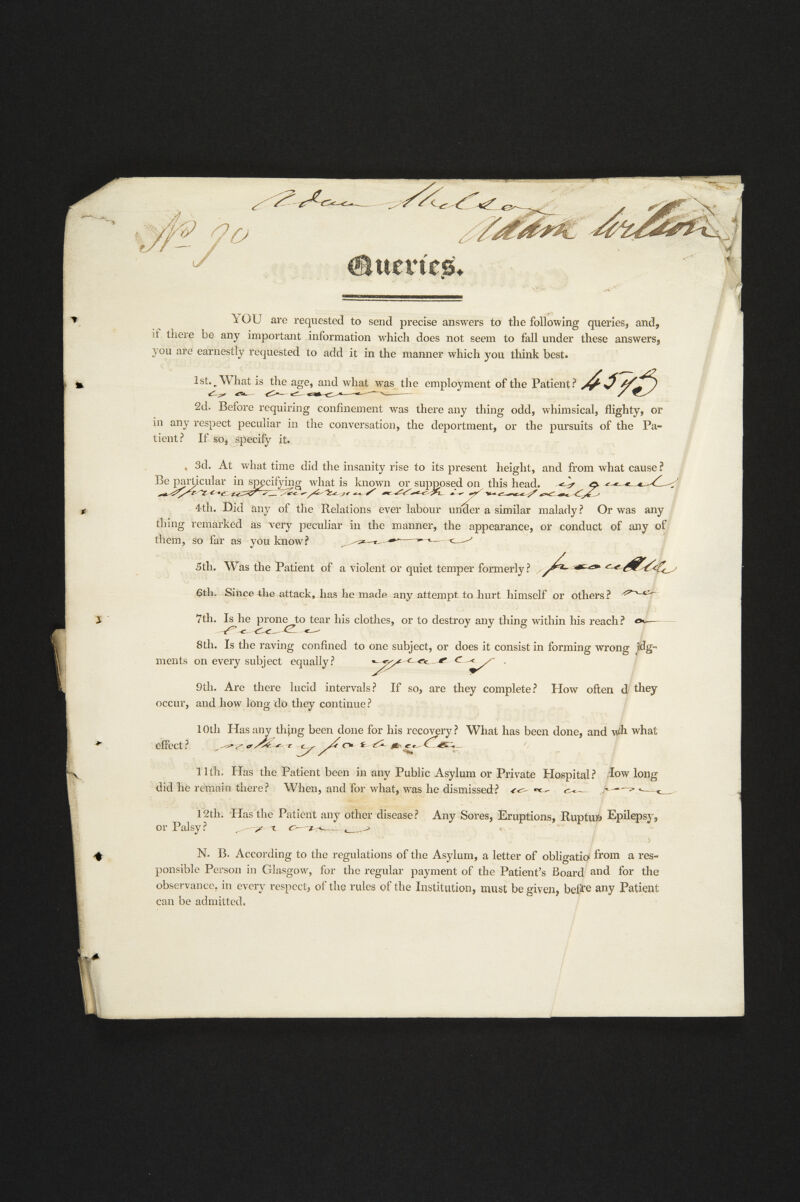 Adam Wilson
Adam Wilson
No 70
Queries.
YOU are requested to send precise answers to the following queries, and,
if there be any important information which does not seem to fall under these answers,
you are earnestly requested to add it in the manner which you think best.
1st. What is the age, and what was the employment of the Patient? 45 yrs
is a
2d. Before requiring confinement was there any thing odd, whimsical, flighty, or
in any respect peculiar in the conversation, the deportment, or the pursuits of the Pa-
tient? If so, specify it.
3d. At what time did the insanity rise to its present height, and from what cause?
Be particular in specifying what is known or supposed on this head. is
present attack is of
4th. Did any of the Relations ever labour under a similar malady? Or was any
thing remarked as very peculiar in the manner, the appearance, or conduct of any of
them, so far as you know?
5th. Was the Patient of a violent or quiet temper formerly? peaceable
6th. Since the attack, has he made any attempt to hurt himself or others?
7th. Is he prone to tear his clothes, or to destroy any thing within his reach?
8th. Is the raving confined to one subject, or does it consist in forming wrong jdg-
ments on every subject equally? equally
9th. Are there lucid intervals? If so, are they complete? How often d they
occur, and how long do they continue?
10th Has any thing been done for his recovery? What has been done, and wh what
effect? nothing particular
11th. Has the Patient been in any Public Asylum or Private Hospital? How long
did he remain there? When, and for what, was he dismissed?
12th. Has the Patient any other disease? Any Sores, Eruptions, Ruptu Epilepsy,
or Palsy?
N. B. According to the regulations of the Asylum, a letter of obligatio from a res-
ponsible Person in Glasgow, for the regular payment of the Patient's Board and for the
observance, in every respect, of the rules of the Institution, must be given, before any Patient
can be admitted.